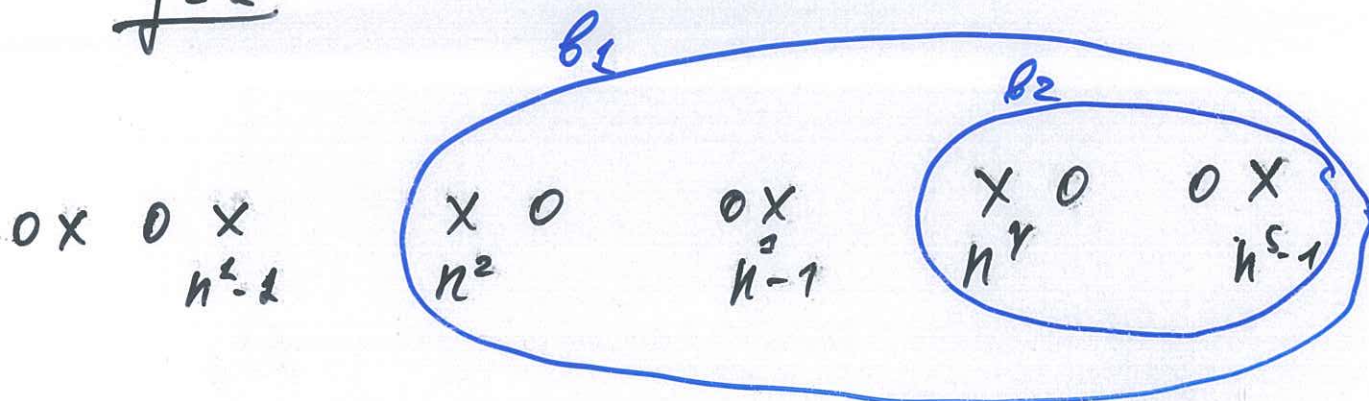 b1
b2
o x o x x o o x x o o x
n²-1 n² n³-1 n^γ n⁵-1